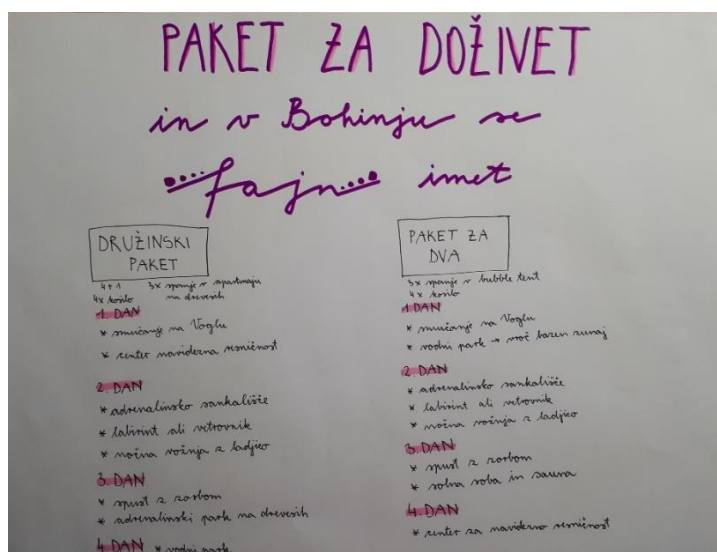 PAKET ZA DOŽIVET
in v Bohinju se
fajn imet
DRUŽINSKI
PAKET
4+1 3x spanje v apartmaju
4x kosilo na drevesih
1. DAN
* smučanje na Voglu
* center navidezna resničnost
2. DAN
* adrenalinsko sankališče
* labirint ali vetrovnik
* nočna vožnja z ladjico
3. DAN
* spust z zorbom
* adrenalinski park na drevesih
4. DAN * vodni park
PAKET ZA
DVA
3x spanje v bubble tent
4x kosilo
1. DAN
* smučanje na Voglu
* vodni park → vroč bazen zunaj
2. DAN
* adrenalinsko sankališče
* labirint ali vetrovnik
* nočna vožnja z ladjico
3. DAN
* spust z zorbom
* solna soba in sauna
4. DAN
* center za navidezno resničnost